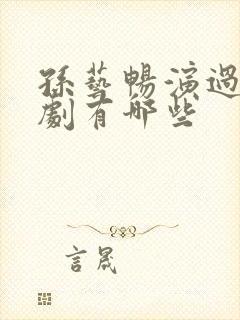 孫藝暢演過
劇有哪些
言晟